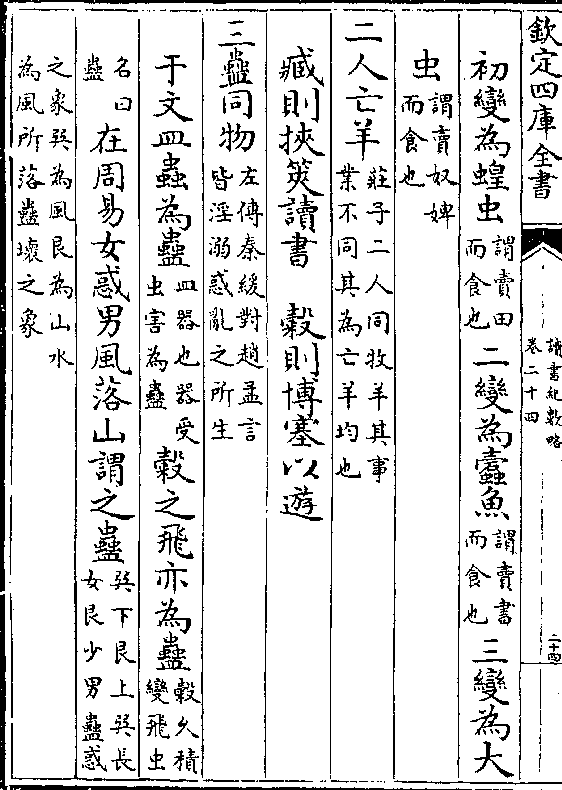 欽定四庫全書
讀書紀數略
卷二十四
二十四
初變為蝗虫謂賣田而食也二變為蠹魚謂賣書而食也三變為大
虫謂賣奴婢而食也
二人亡羊莊子二人同牧羊其事業不同其為亡羊均也
臧則挾筴讀書　縠則博塞以遊
三蠱同物左傳秦緩對趙孟言皆淫溺惑亂之所生
于文皿蟲為蠱皿器也器受虫害為蠱縠之飛亦為蠱縠久積變飛虫
名曰蠱在周易女惑男風落山謂之蠱巽下艮上巽長女艮少男蠱惑
之象巽為風艮為山水為風所落蠱壞之象